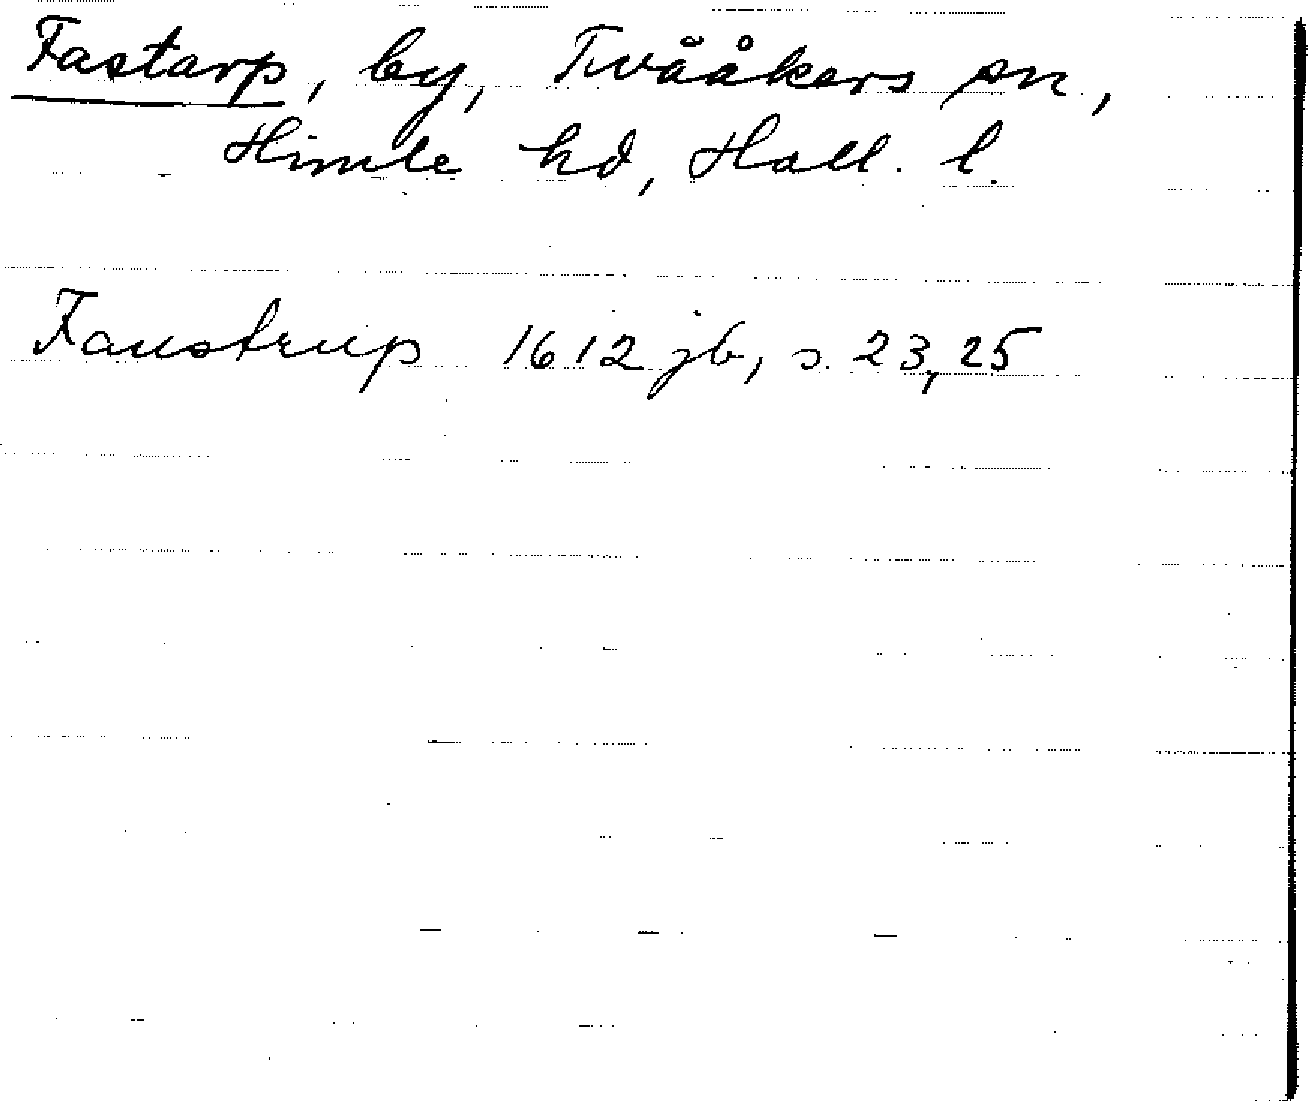 Fastarp, by, Tvååkers sn,
Himle hd, Hall. l.
Faustrup 1612 jb, s. 23, 25